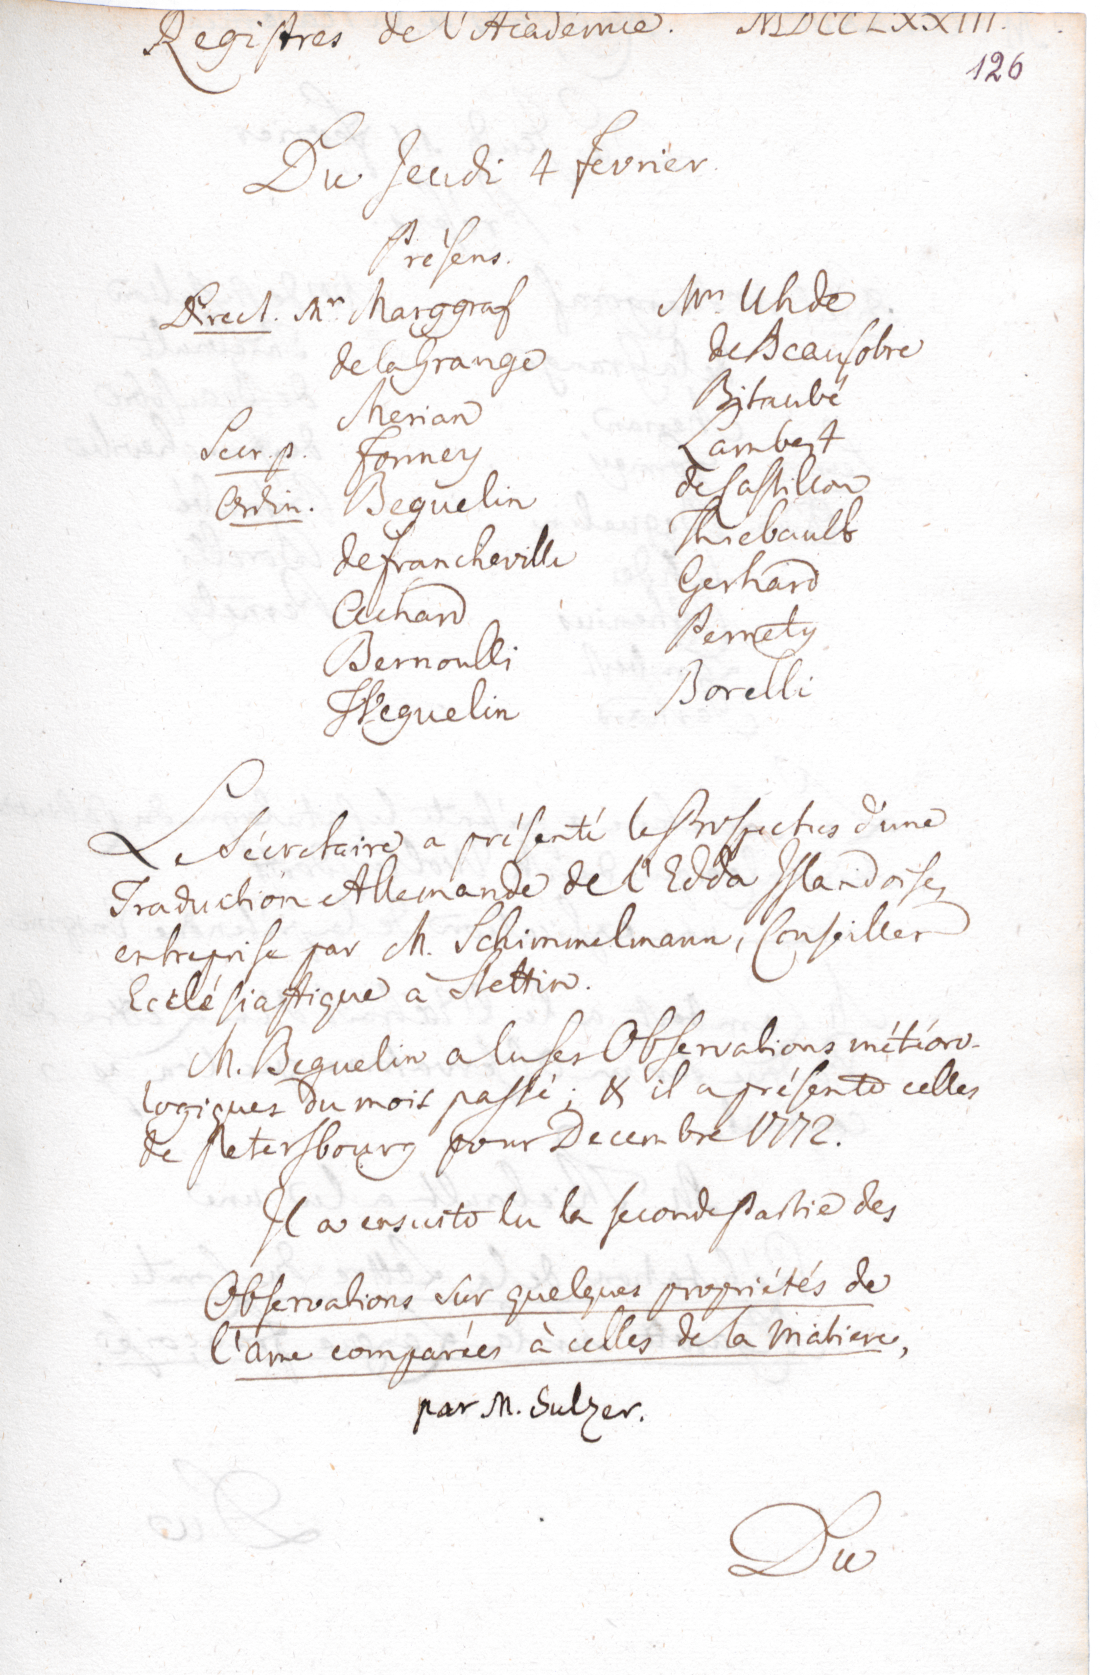 Registres de l'Academie. MDCCLXXIII.
126
Du Jeudi 4 fevrier.
Présens.
Direct. Mrs Marggraf
de la Grange
Merian
Secr. p. formey
Ordin. Beguelin
de francheville
Achard
Bernoulli
Weguelin
Mrs Uhde
de Beausobre
Bitaubé
Lambert
de Castillon
Thiebault
Gerhard
Pernety
Borelli
Le Sécretaire a présenté le Prospectus d'une
Traduction Allemande de l'Edda Islandoise,
entreprise par M. Schimmelmann, Conseiller
Ecclésiastique à Stettin.
M. Beguelin a lu ses Observations météoro-
logiques du mois passé; & il a présenté celles
de Petersbourg pour Decembre 1772.
Il a ensuite lu la seconde Partie des
Observations sur quelques propriétés de
l'ame comparées à celles de la matiere,
par M. Sulzer.
Du